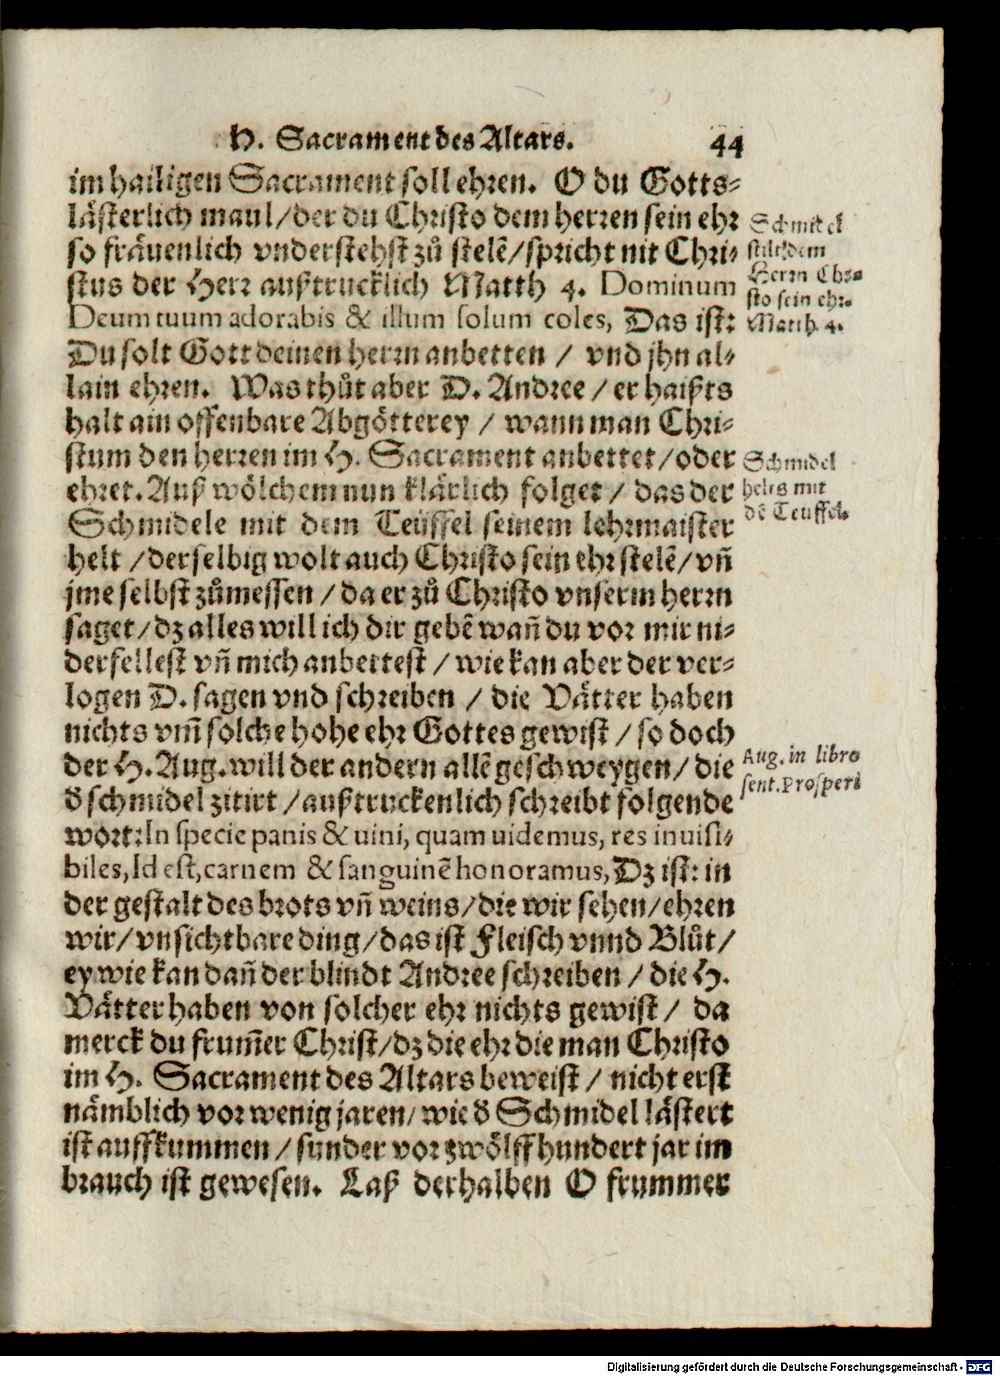 H. Sacrament des Altars. 44
im hailigen Sacrament soll ehren. O du Gotts-
lästerlich maul/der du Christo dem herren sein ehr
so fräuenlich vnderstehst zů stelẽ/spricht nit Chri-
stus der Herr außtrucklich Matth 4. Dominum
Deum tuum adorabis & illum solum coles, Das ist:
Du solt Gott deinen herrn anbetten / vnd jhn al-
lain ehren. Was thůt aber D. Andree / er haißts
halt ain offenbare Abgötterey / wann man Chri-
stum den herren im H. Sacrament anbettet/oder
ehret. Auß wölchem nun klärlich folget / das der
Schmidele mit dem Teüffel seinem lehrmaister
helt /derselbig wolt auch Christo sein ehr stelẽ/vñ
jme selbst zůmessen /da er zů Christo vnserm herrn
saget/dz alles will ich dir gebẽ wañ du vor mir ni-
derfellest vñ mich anbettest / wie kan aber der ver-
logen D. sagen vnd schreiben / die Vätter haben
nichts vm̃ solche hohe ehr Gottes gewist / so doch
der H. Aug. will der andern allẽ geschweygen/die
d̕ schmidel zitirt /außtruckenlich schreibt folgende
wort:In specie panis & uini, quam uidemus, res inuisi-
biles, Id est, carnem & sanguinẽ honoramus, Dz ist: in
der gestalt des brots vñ weins/die wir sehen/ehren
wir/vnsichtbare ding/das ist Fleisch vnnd Blůt/
ey wie kan dañ der blindt Andree schreiben / die H.
Vätter haben von solcher ehr nichts gewist / da
merck du frum̃er Christ/dz die ehr die man Christo
im H. Sacrament des Altars beweist / nicht erst
nämblich vor wenig jaren/wie d̕ Schmidel lästert
ist auffkummen /sunder vor zwölffhundert jar im
brauch ist gewesen. Laß derhalben O frummer
Schmidel
stilt dem
Herrn Chri-
sto sein ehr.
Matth. 4.
Schmidel
helts mit
dẽ Teuffel.
Aug. in libro
sent. Prosperi
Digitalisierung gefördert durch die Deutsche Forschungsgemeinschaft - DFG